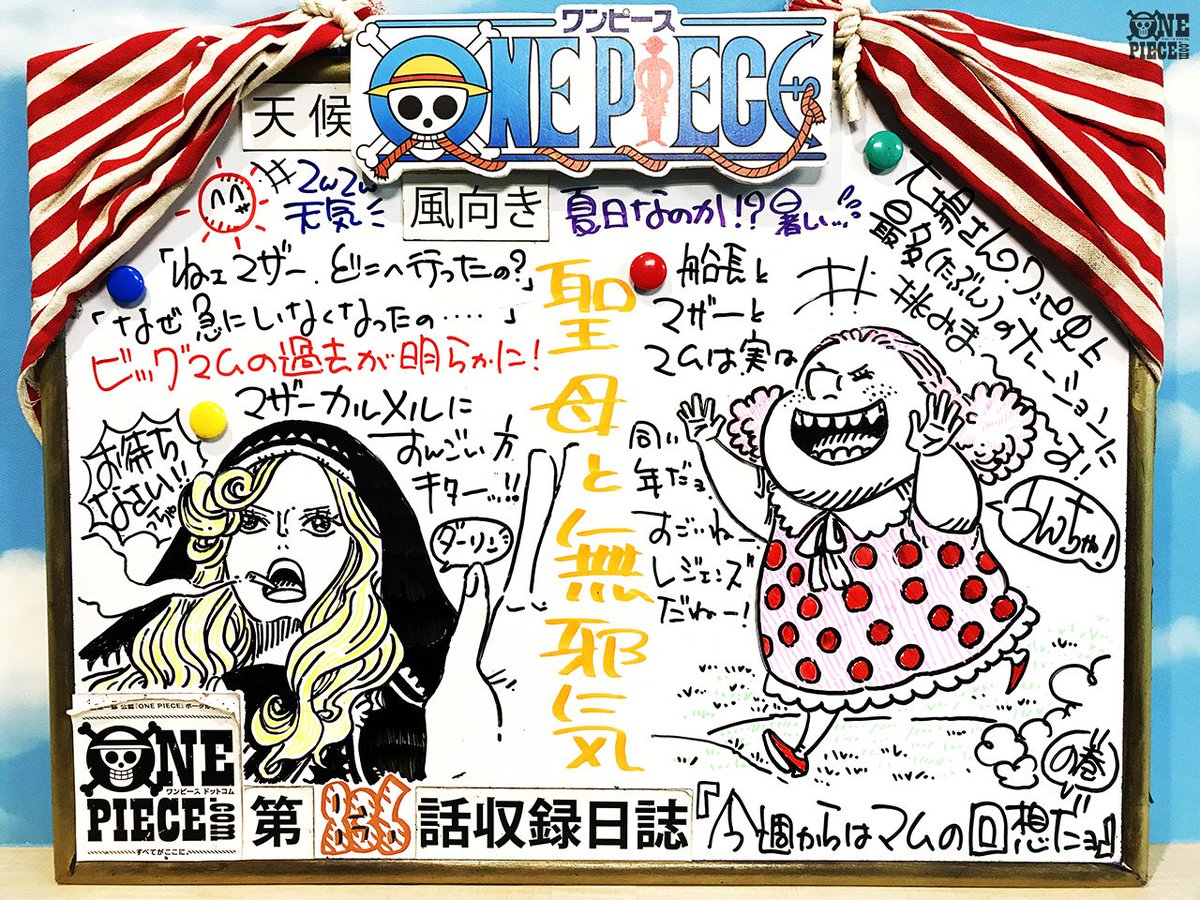 ワンピース
ONE PIECE
ONE
PIECE.com
天候
#ZwZw
天気
風向き
夏日なのか!?暑い…
「ねェマザー、どこへ行ったの?」
「なぜ急にいなくなったの‥‥」
ビッグマムの過去が明らかに!
マザーカルメルに
すんごい方
キターッ!!
お待ち
なさい!!
ダーリン
聖母と無邪気
船長と
マザーと
マムは実は
同い
年だョ。
すごいねー
レジェンズ
だねー!
大場さんのワンピ史上
最多(たぶん)のナレーション
の巻
ONE
ワンピース ドットコム
PIECE.com
すべてがここに。
第
話収録日誌
『今週からはマムの回想だョ』